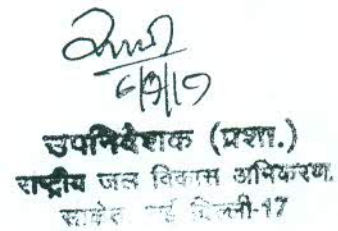 उपनिदेशक (प्रशा.)
राष्ट्रीय जल विकास अभिकरण.
साकेत नई दिल्ली-17